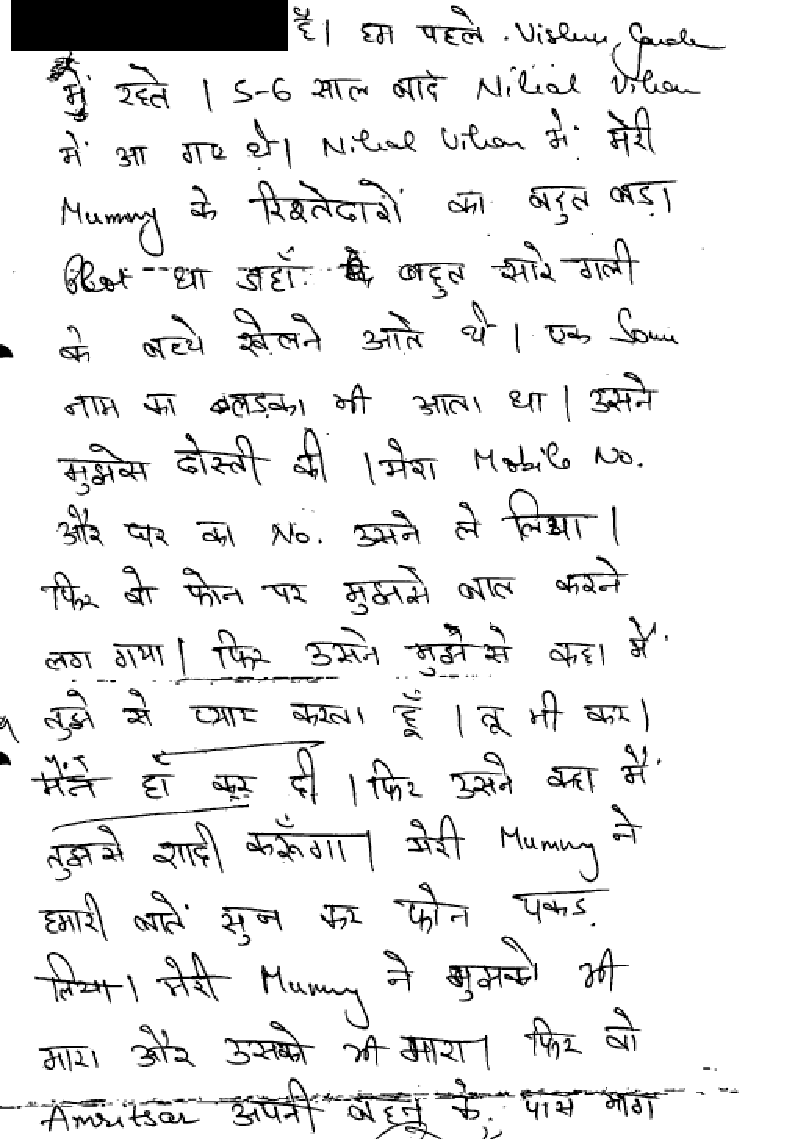 है। हम पहले Vishnu Garden
में रहते । 5-6 साल बाद Nihal Vihar
में आ गए थे। Nihal Vihar में मेरी
Mummy के रिश्तेदारों का बहुत बड़ा
Plot था जहाँ के बहुत सारे गली
के बच्चे खेलने आते थे । एक Sonu
नाम का लड़का भी आता था । उसने
मुझसे दोस्ती की । मेरा Mobile No.
और घर का No. उसने ले लिया ।
फिर वो फोन पर मुझसे बात करने
लग गया । फिर उसने मुझे से कहा मैं
तुझे से प्यार करता हूँ । तू भी कर ।
मैंने हाँ कर दी । फिर उसने कहा मैं
तुझसे शादी करूँगा । मेरी Mummy ने
हमारी बातें सुन कर फोन पकड़
लिया । मेरी Mummy ने मुझको भी
मारा और उसको भी मारा । फिर वो
Amritsar अपनी बहन के पास भाग